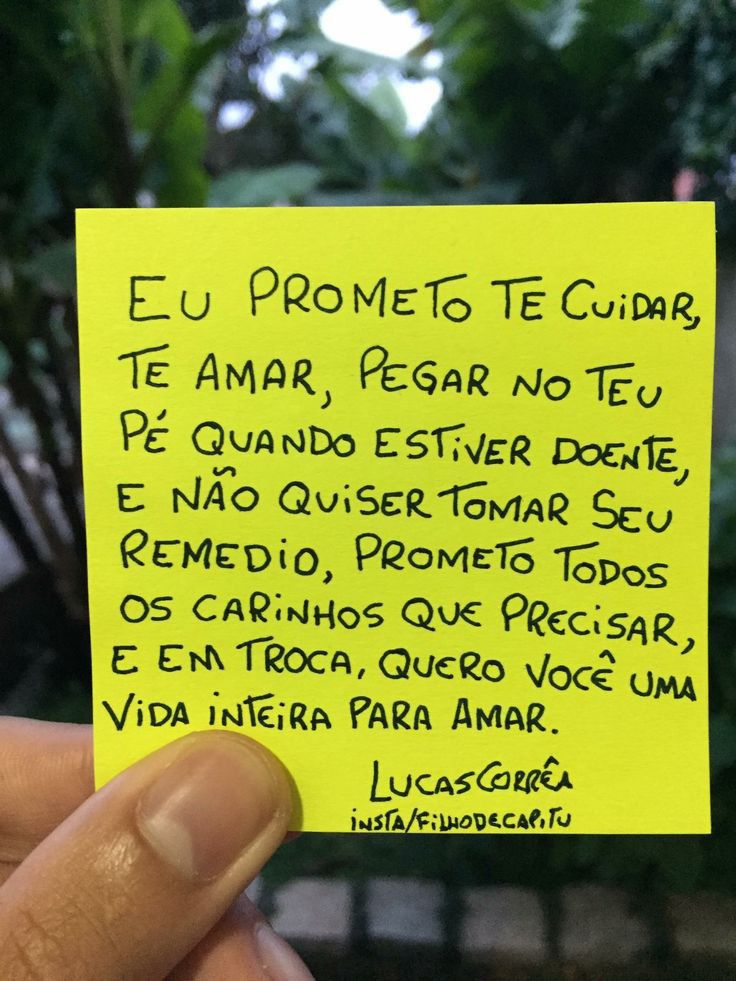 EU PROMETO TE CUIDAR,
TE AMAR, PEGAR NO TEU
PÉ QUANDO ESTIVER DOENTE,
E NÃO QUISER TOMAR SEU
REMEDIO, PROMETO TODOS
OS CARINHOS QUE PRECISAR,
E EM TROCA, QUERO VOCÊ UMA
VIDA INTEIRA PARA AMAR.
LUCAS CORRÊA
INSTA/FILHODECAPITU